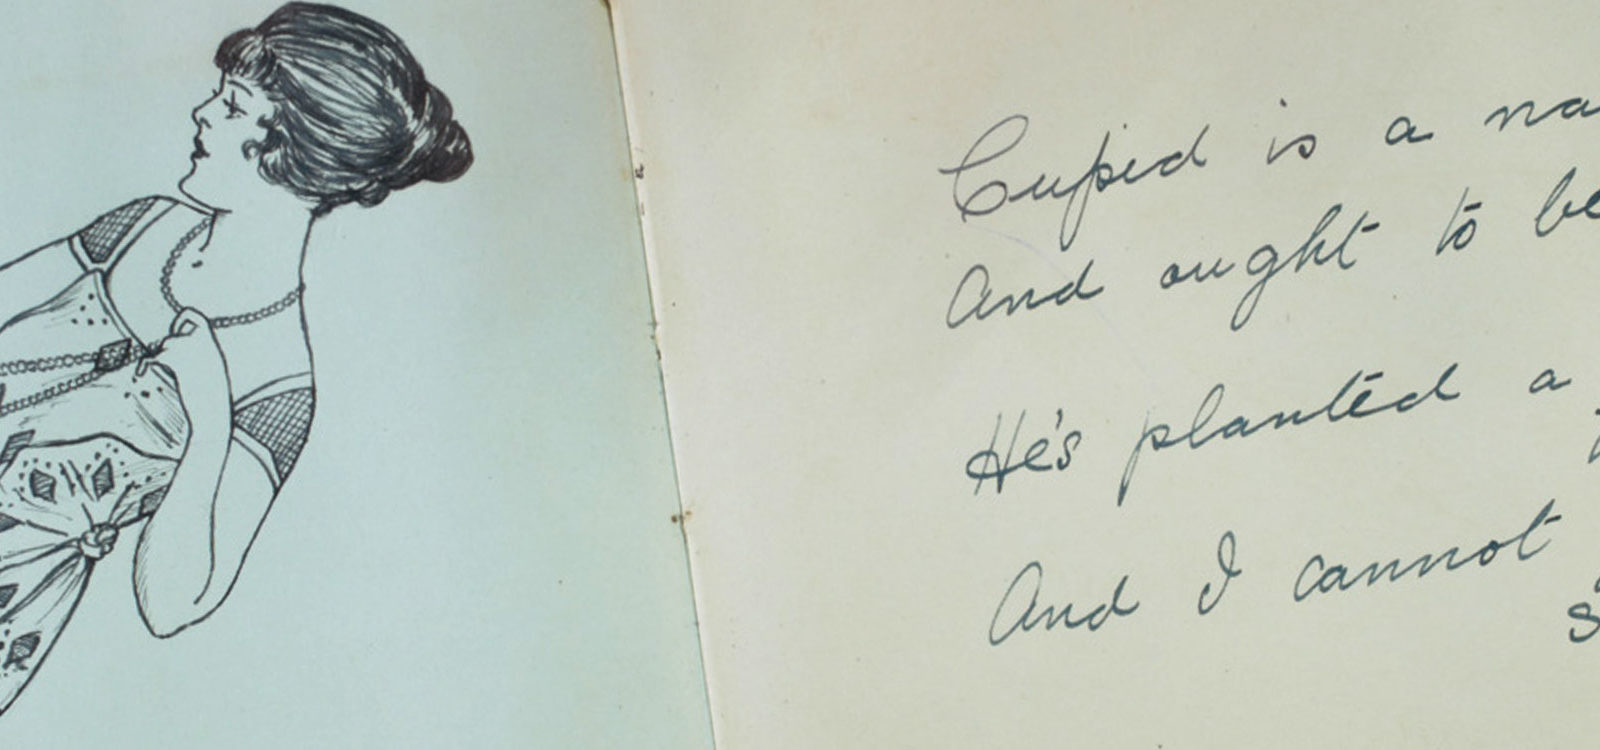 Cupid is a na
And ought to be
He's planted a
And I cannot